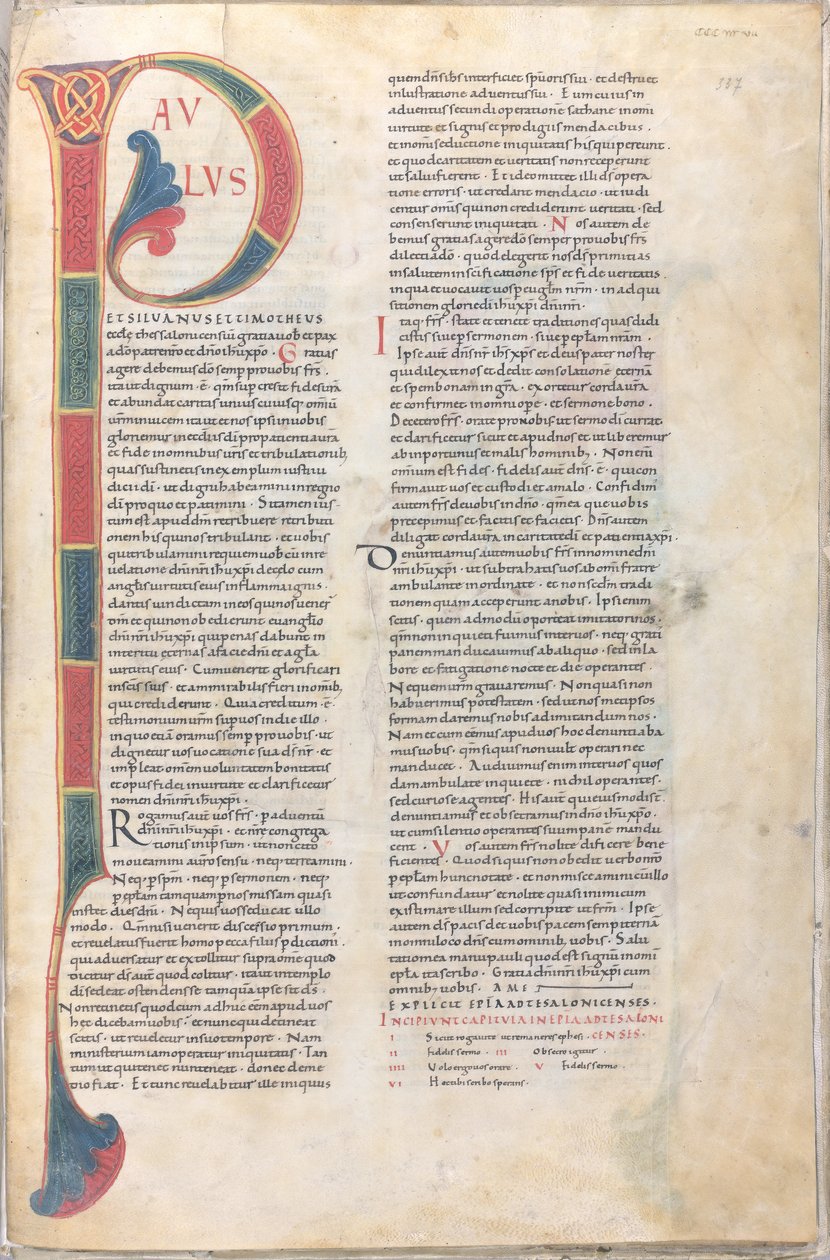 337
PAV
LVS
ET SILUANUS ET TIMOTHEUS
eccłę thessalonicensiū gratia uob̄ et pax
a dō patre nrō et dn̄o ihū xp̄o · Gratias
agere debemus dō semꝑ pro uobis fr̄s ·
ita ut dignum · ē · qm̄ suꝑ crescit fides ur̄a
et abundat caritas uniuscuiusq; omiū
ur̄m inuicem ita ut et nos ipsi in uobis
gloriemur in eccłis dī pro patientia ur̄a
et fide in omnibus uris et tribulationib;
quas sustinetis in exemplum iusti iu
dicii dī · ut digni habeamini in regno
dī pro quo et patimini · Si tamen ius-
tum est apud dm̄ retribuere retributi
onem his qui nos tribulant · et uobis
qui tribulamini requiem uob̄cū in re
uelatione dn̄i nr̄i ihū xp̄i de cęlo cum
anglis uirtutis eius in flamma ignis ·
dantis uindictam in eos qui n̄ouer̄
dm̄ et qui non obediērunt euanglio
dn̄i nr̄i ihū xp̄i qui penas dabunt in
interitu eternas a facie dn̄i et a głā
uirtutis eius · Cum uenerit glorificari
in scīs suis · et ammirabilis fieri in omīb;
qui crediderunt · Quia creditum · ē ·
testimonium ur̄m sup uos in die illo ·
in quo etiā oramus semꝑ pro uobis · ut
dignetur uos uocatione sua d̄s nr̄ · et
impleat omēm uoluntatem bonitatis
et opus fidei in uirtute et clarificetur
nomen dn̄i nr̄i ihū xp̄i ·
Rogamus aut̄ uos fr̄s · ꝑ aduentū
dn̄i nr̄i ihū xp̄i · et nrę congrega
tionis in ipsum · ut non cito
moueamini a ur̄o sensu · neq; terreamini ·
Neq; ꝑ spm̄ · neq; ꝑ sermonem · neq;
ꝑ epłam tamquam ꝑ nos missam quasi
instet dies dn̄i · Ne quis uos seducat ullo
modo · Qm̄ nisi uenerit discessio primum ·
et reuelatus fuerit homo peccati filius ꝑditioni ·
qui aduersatur et extollitur supra omē quod
dicitur d̄s aut̄ quod colitur · ita ut in templo
dī sedeat ostendens se tamquā ipse sit d̄s ·
Non retinetis quod cum adhuc eēm apud uos
hęc dicebam uobis · et nunc quid detineat
scitis · ut reueletur in suo tempore · Nam
ministerium iam operatur iniquitatis · Tan
tum ut qui tenet nunc teneat · donec de me
dio fiat · Et tunc reuelabitur ille iniquus
quem dn̄s ihs̄ interficiet spū oris sui · et destruet
inlustratione aduentus sui · Eum cuius in
aduentus secundū operationē sathanę in omī
uirtute et signis et prodigiis mendacibus ·
et in omī seductione iniquitatis his qui pereunt ·
et quod caritatem et ueritatis non receperunt
ut salui fierent · Et ideo mittet illi d̄s opera
tionē erroris · ut credant mendacio · ut iudi
centur omn̄s qui non crediderunt ueritati · sed
consenserunt iniquitati · Nos autem de
bemus gratias agere dō semper pro uobis fr̄s
dilecti a dō · quod elegerit nos d̄s primitias
in salutem in scīficatione sp̄s et fide ueritatis ·
in qua et uocauit uos ꝑ eugłm nr̄m · in adqui
sitionem glorię dn̄i ihū xp̄i dn̄i nr̄i ·
Itaq; fr̄s · state et tenete traditiones quas didi
cistis siue ꝑ sermonem · siue ꝑ epłam nr̄am ·
Ipse aut̄ dn̄s nr̄ ihs̄ xp̄s et d̄s et pater noster
qui dilexit nos et dedit consolationē eternā
et spem bonam in gr̄a · exortetur corda ur̄a
et confirmet in omni opere · et sermone bono ·
De cetero fr̄s · orate pro nobis ut sermo dī currat ·
et clarificetur sicut et apud nos et ut liberemur
ab inportunis et malis hominib; · Non enī
omium est fides · fidelis aut̄ d̄n̄s · ē · qui con
firmauit uos et custodiet a malo · Confidim̄
autem fr̄s de uobis in dn̄o · qm̄ ea que uobis
precepimus et facitis et facietis · Dn̄s autem
diligat corda ur̄a in caritate dī et patientia xp̄i ·
Denuntiamus autem uobis fr̄s in nomine dn̄i
nr̄i ihū xp̄i · ut subtrahatis uos ab omī fratre
ambulante inordinate · et non scdm̄ tradi
tionem quam acceperunt a nobis · Ipsi enim
scitis · quem ad modū oporteat imitari nos ·
qm̄ non inquieti fuimus inter uos · neq; grati
panem manducauimus ab aliquo · sed in la
bore et fatigatione nocte et die operantes ·
Ne quem ur̄m grauaremus · Non quasi non
habuerimus potestatem · sed ut nos metipsos
formam daremus nobis ad imitandum nos ·
Nam et cum eēmus apud uos hoc denuntiaba
mus uobis · qm̄ si quis non uult operari nec
manducet · Audiuimus enim inter uos quos
dam ambulate inquiete · nichil operantes ·
sed curiose agentes · His aut̄ qui eiusmodi st̄
denuntiamus et obsecramus in dn̄o ihū xp̄o ·
ut cum silentio operantes suum panē mandu
cent · Vos autem fr̄s nolite dificere bene
ficientes · Quod si quis non obedit uerbo nr̄o
ꝑ epłam hunc notate · et non misceamini cū illo
ut confundatur et nolite quasi inimicum
existimare illum sed corripite ut fr̄m · Ipse
autem d̄s pacis det uobis pacem sempiternā
in omni loco dn̄s cum omnib; uobis · Salu
tatio mea manu pauli quod est signū in omī
epła ita scribo · Gratia dn̄i nr̄i ihū xp̄i cum
omnib; uobis · AMEN
EXPLICIT EPLA AD TESALONICENSES ·
INCIPIUNT CAPITULA IN EPLA AD TESALONI
CENSES ·
I Sicut rogaui te ut remaneres ephesi ·
II Fidelis sermo · III Obsecro igitur ·
IIII Uolo ergo uos orare · V Fidelis sermo ·
VI Hęc tibi scribo sperans ·